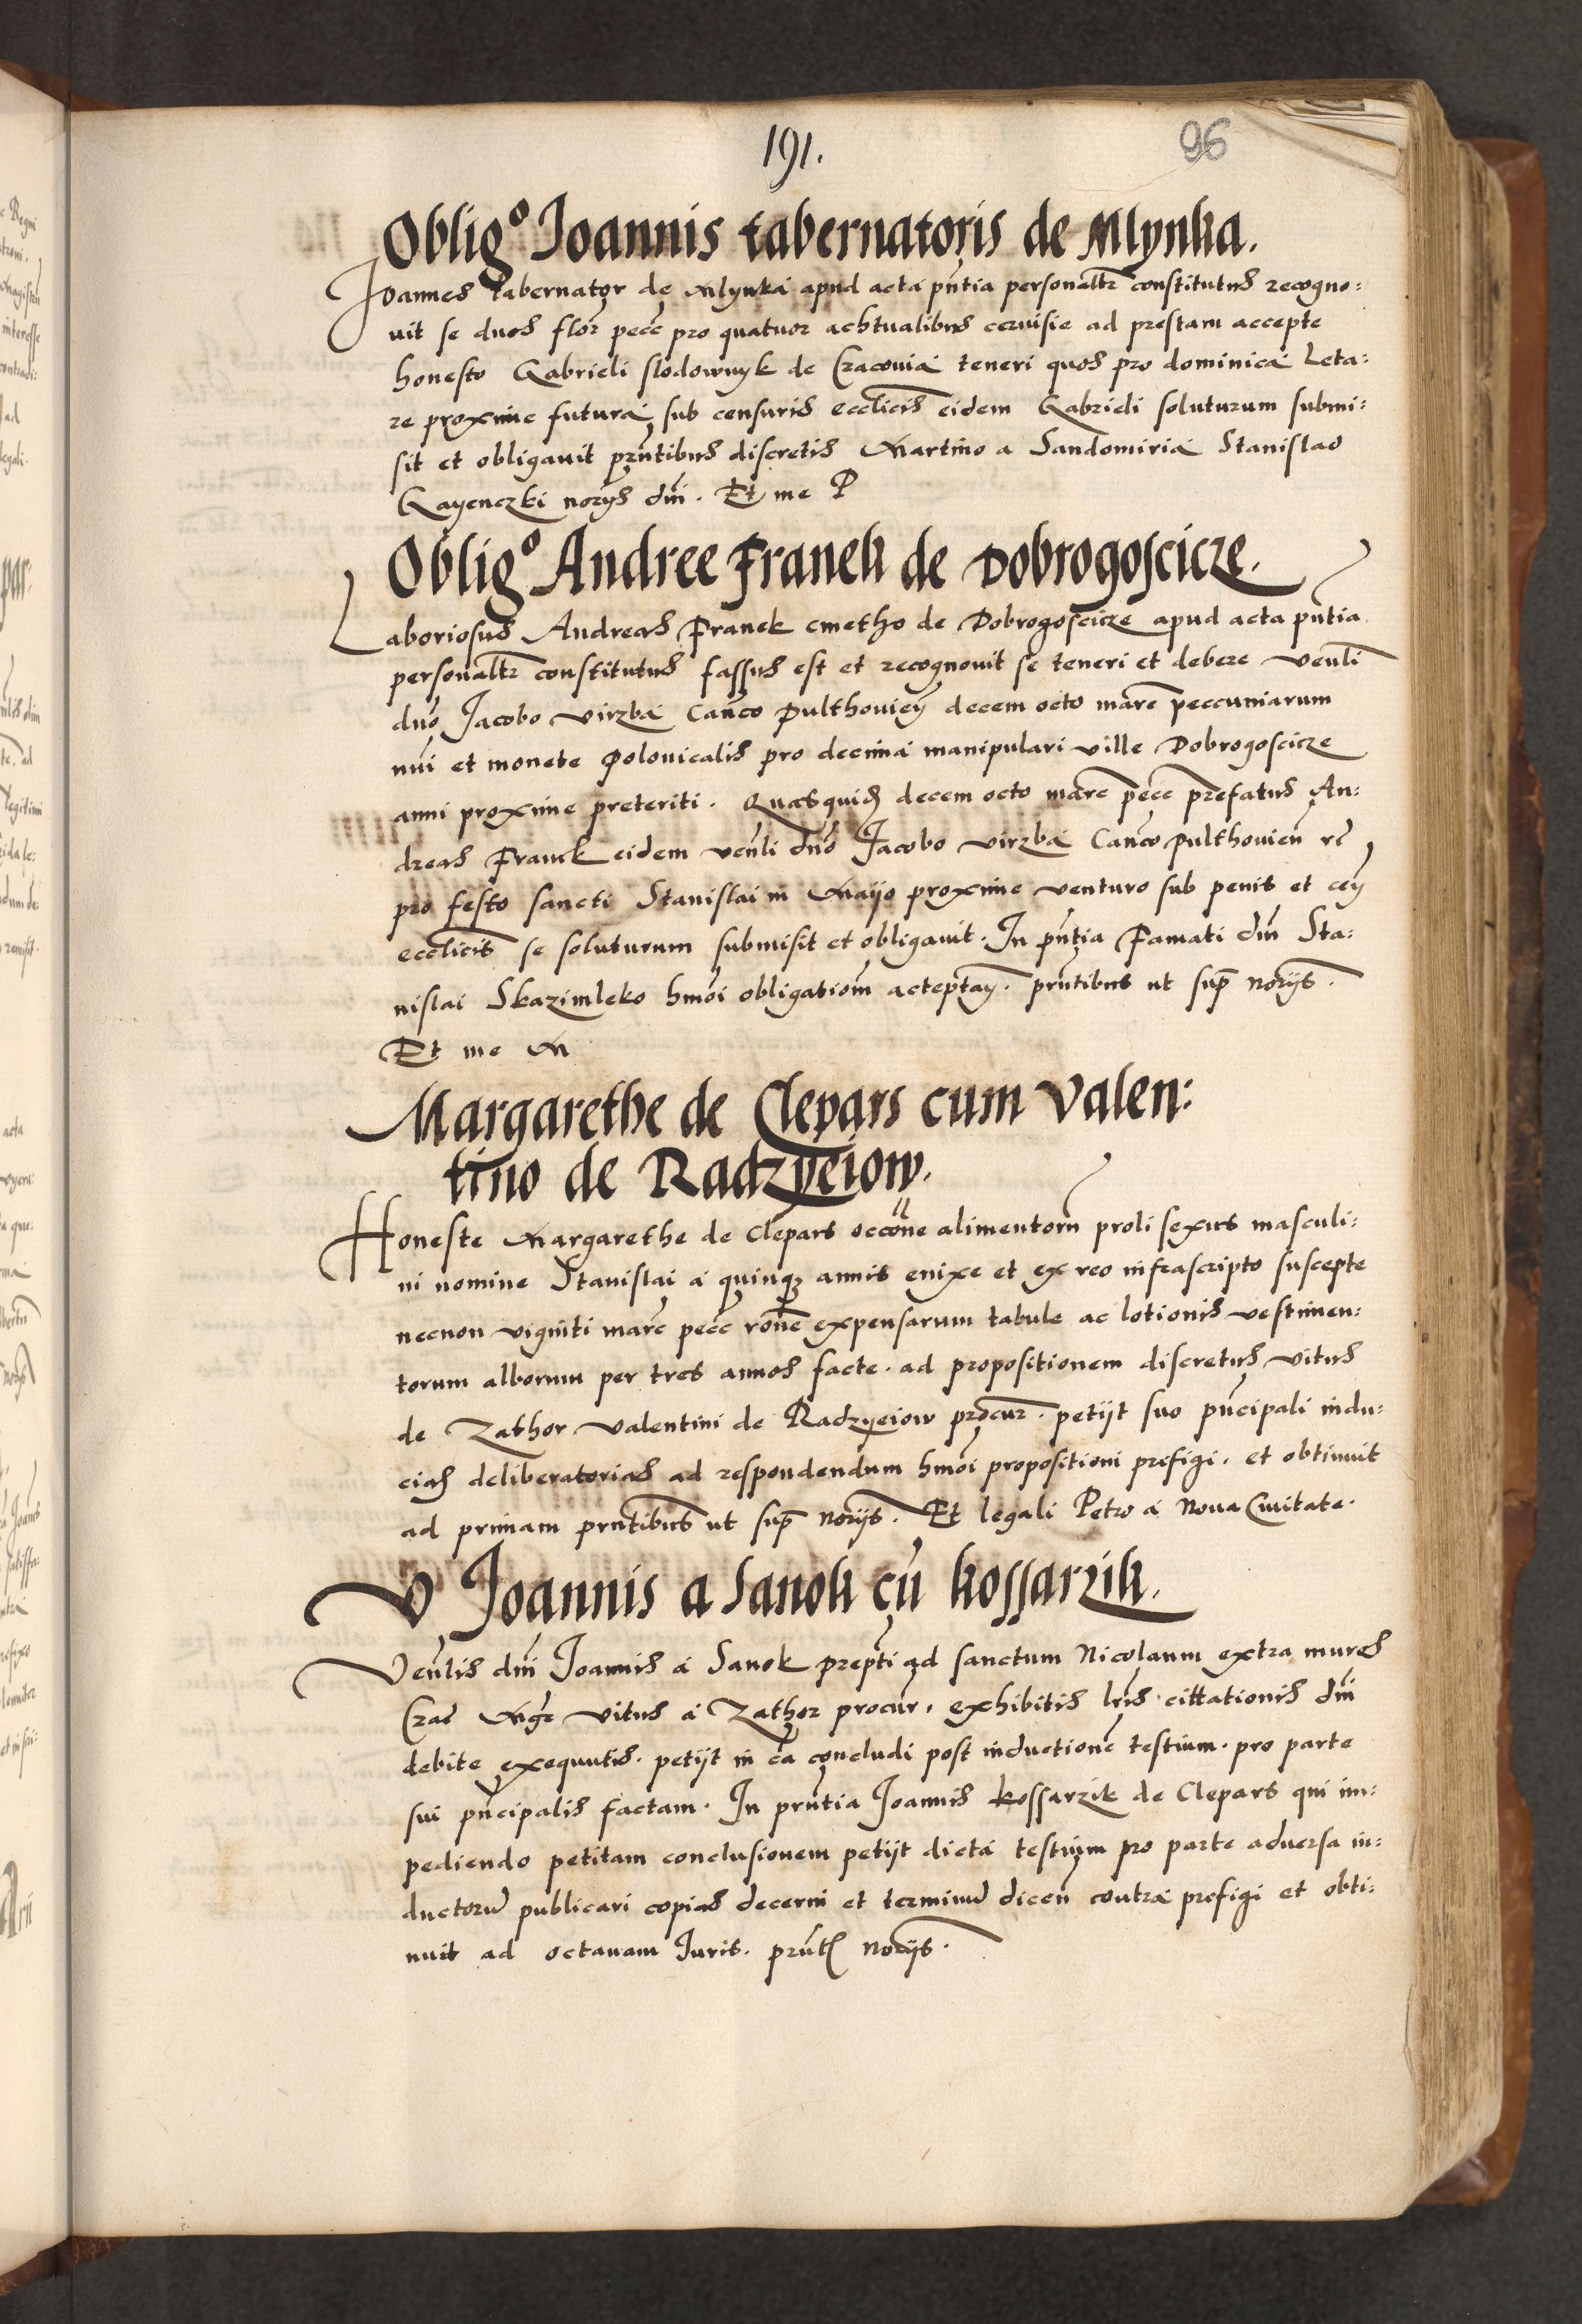 191.
96
Oblig° Joannis tabernatoris de Mlynka.
Joannes tabernator de Mlynka apud acta pntia personaltr constitutus recogno:
vit se duos flor pecc pro quatuor achtualibus cervisie ad prestam accepte
honesto Gabrieli slodownyk de Cracovia teneri quos pro dominica Leta:
re proxime futura sub censuris ecclicis eidem Gabrieli soluturum submi:
sit et obligavit prntibus discretis Martino a Sandomiria Stanislao
Gayenczki norys dni. Et me P
Oblig° Andree Franek de Dobrogoscicze.
Laboriosus Andreas Franek cmetho de Dobrogoscicze apud acta pntia
personaltr constitutus fassus est et recognovit se teneri et debere venli
dno Jacobo Virzba Canco Pulthovien decem octo marc peccuniarum
nui et monete Polonicalis pro decima manipulari ville Dobrogoscicze
anni proxime preteriti. Quasquid decem octo marc pecc prefatus An:
dreas Franek eidem venli dno Jacobo Virzba Canco Pulthovien
pro festo sancti Stanislai in Maijo proxime venturo sub penis et cen
ecclicis se soluturum submisit et obligavit. In pntia Famati dni Sta:
nislai Skazimleko hmoi obligationem acceptan. prntibus ut sup norijs.
Et me M
Margarethe de Clepars cum Valen:
tino de Radzyeiow.
Honeste Margarethe de Clepars occone alimentorum proli sexus masculi:
ni nomine Stanislai a quinque annis enixe et ex reo infrascripto suscepte
necnon viginti marc pecc rone expensarum tabule ac lotionis vestimen:
torum alborum per tres annos facte. ad propositionem discretus Vitus
de Zathor Valentini de Radzyeiow procur. petijt suo pncipali indu:
cias deliberatorias ad respondendum hmoi propositioni prefigi. et obtinuit
ad primam prntibus ut sup norijs. Et legali Petro a Nova Civitate.
V Joannis a Sanok cu kossarzik.
Venlis dni Joannis a Sanok prepti ad sanctum Nicolaum extra muros
Crac Mgr Vitus a Zathor procur. exhibitis lris cittationis dni
debite exequutis. petijt in ca concludi post inductione testium. pro parte
sui pncipalis factam. In prntia Joannis kossarzik de Clepars qui im:
pediendo petitam conclusionem petijt dicta testium pro parte adversa in:
ductoru publicari copias decerni et terminu dicen contra prefigi et obti:
nuit ad octavam Juris. prnt norijs.